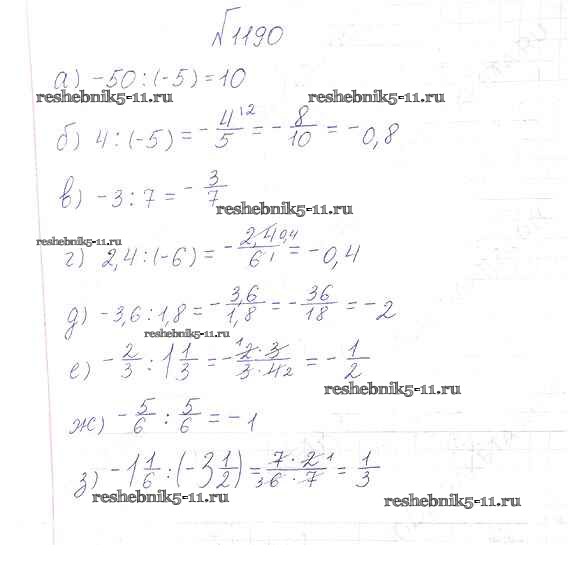 №1190
а) -50 : (-5) = 10
reshebnik5-11.ru reshebnik5-11.ru
б) 4 : (-5) = - 4/5 ^(2 = - 8/10 = -0,8
в) -3 : 7 = - 3/7
reshebnik5-11.ru
reshebnik5-11.ru
г) 2,4 : (-6) = - 2,4 0,4/6 1 = -0,4
д) -3,6 : 1,8 = - 3,6/1,8 = - 36/18 = -2
reshebnik5-11.ru
е) - 2/3 : 1 1/3 = - 1 2·3/3·4 2 = - 1/2
reshebnik5-11.ru
ж) - 5/6 : 5/6 = -1
з) -1 1/6 : (-3 1/2) = 7·2 1/3 6·7 = 1/3
reshebnik5-11.ru reshebnik5-11.ru